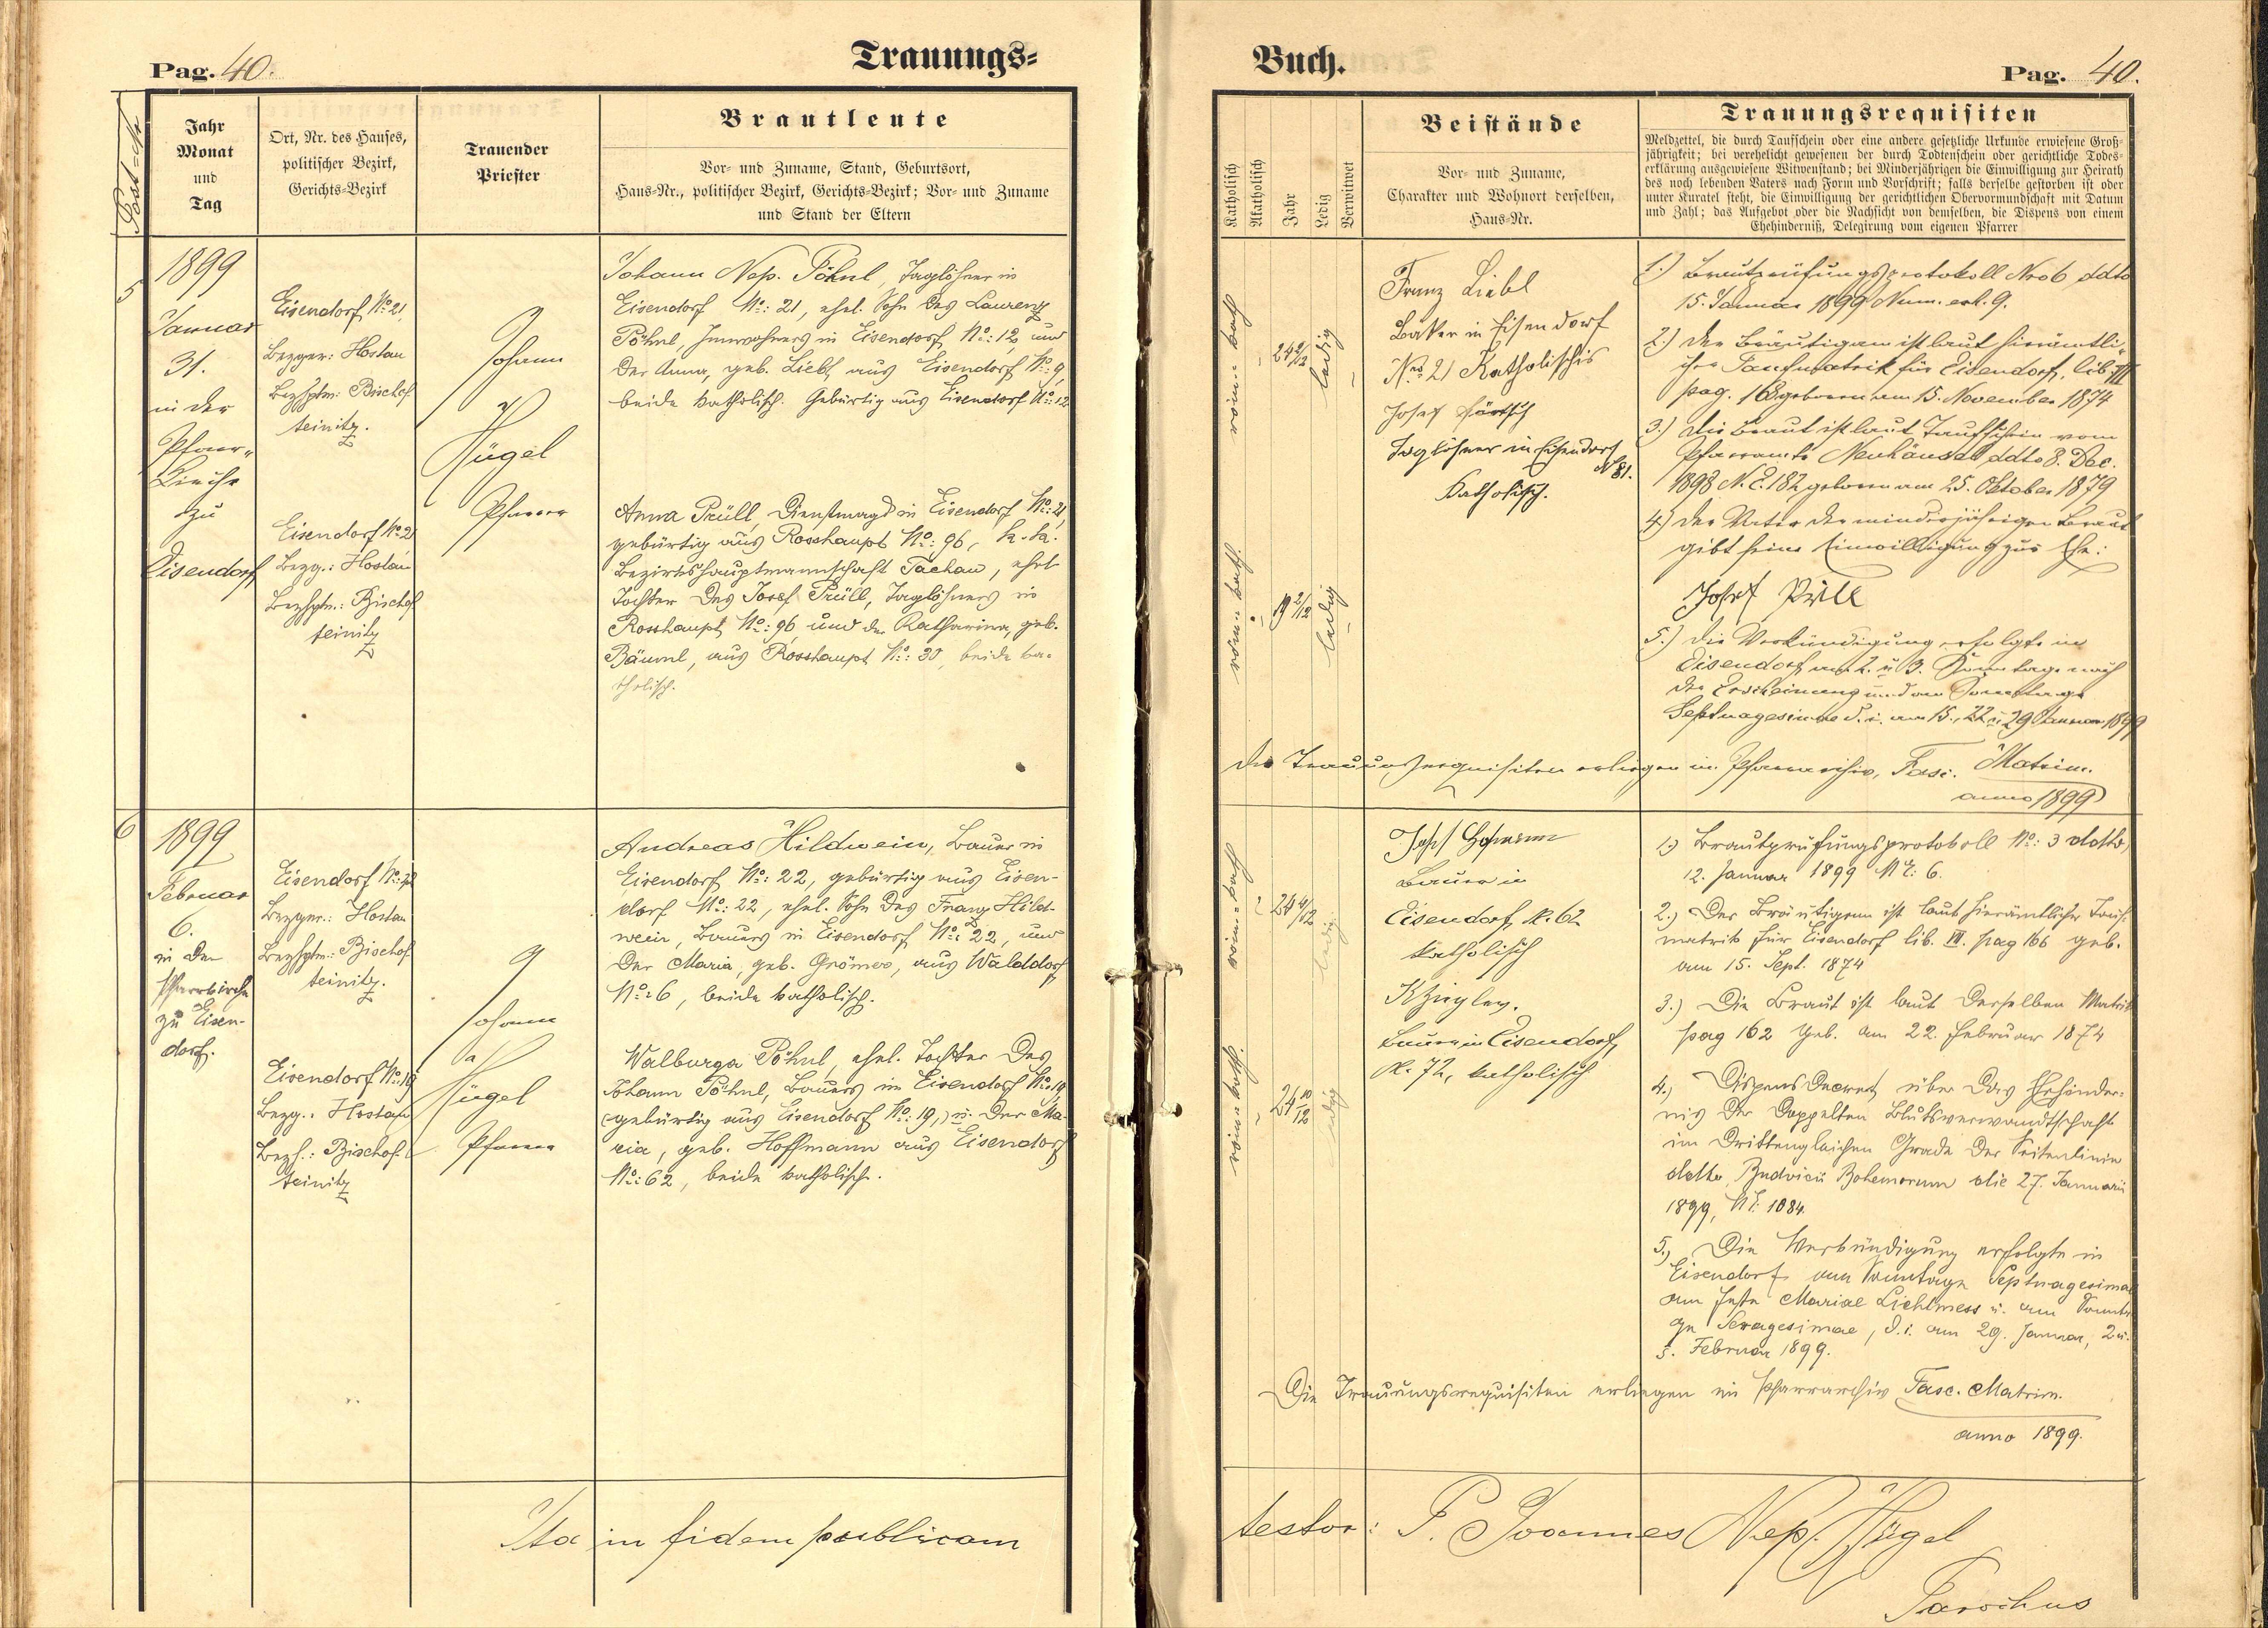 Pag. 40.
Trauungs-
Post-Nr
Jahr
Monat
und
Tag
Ort, Nr. des Hauses,
politischer Bezirk,
Gerichts-Bezirk
Trauender
Priester
Brautleute
Vor- und Zuname, Stand, Geburtsort,
Haus-Nr., politischer Bezirk, Gerichts-Bezirk; Vor- und Zuname
und Stand der Eltern
5
1899
Januar
31.
in der
Pfarr-
Kirche
zu
Eisendorf
Eisendorf No 21.
Bezger: Hostau
Bezhptm: Bischof
teinitz.
Eisendorf No 21
Bezg.: Hostau
Bezhptm.: Bischof
teinitz
P
Johann
N
Hügel
Pfarrer
Johann Nep. Pöhnl, Taglöhner in
Eisendorf No: 21, ehel. Sohn des Laurenz
Pöhnl, Inwohners in Eisendorf No: 12, und
der Anna, geb. Liebl, aus Eisendorf No: 9,
beide katholisch. Gebürtig aus Eisendorf No: 12
Anna Prüll, Dienstmagd in Eisendorf No: 21,
gebürtig aus Rosshaupt No: 96, k. k.
Bezirkshauptmannschaft Tachau, ehel.
Tochter des Josef Prüll, Taglöhners in
Rosshaupt No: 96 und der Katharina, geb.
Bäuml, aus Rosshaupt No: 30, beide ka-
tholisch.
6
1899
Februar
6.
in der
Pfarrkirche
zu Eisen-
dorf.
Eisendorf No: 22
Bezger.: Hostau
Bezhptm.: Bischof
teinitz.
Eisendorf No: 19
Bezg.: Hostau
Bezh.: Bischof
teinitz
Johann
Hügel
Pfarrer
Andreas Hildwein, Bauer in
Eisendorf No: 22, gebürtig aus Eisen-
dorf No: 22, ehel. Sohn des Franz Hild-
wein, Bauers in Eisendorf No: 22, und
der Maria, geb. Grömer, aus Walddorf
No: 6, beide katholisch.
Walburga Pöhnl, ehel. Tochter des
Johann Pöhnl, Bauers in Eisendorf No: 19
(gebürtig aus Eisendorf No. 19,) u. der Ma-
ria, geb. Hoffmann aus Eisendorf
No: 62, beide katholisch.
Ita in fidem publicam
Buch.
Pag. 40.
Katholisch
Akatholisch
Jahr
Ledig
Verwitwet
Beistände
Vor- und Zuname,
Charakter und Wohnort derselben,
Haus-Nr.
Trauungsrequisiten
Meldzettel, die durch Taufschein oder eine andere gesetzliche Urkunde erwiesene Groß-
jährigkeit; bei verehelicht gewesenen der durch Todtenschein oder gerichtliche Todes-
erklärung ausgewiesene Witwenstand; bei Minderjährigen die Einwilligung zur Heirath
des noch lebenden Vaters nach Form und Vorschrift; falls derselbe gestorben ist oder
unter Kuratel steht, die Einwilligung der gerichtlichen Obervormundschaft mit Datum
und Zahl; das Aufgebot oder die Nachsicht von demselben, die Dispens von einem
Ehehinderniß, Delegirung vom eigenen Pfarrer
röm: kath
24 2/12
ledig
röm: kath.
19 2/12
ledig
Franz Liebl
Bäker in Eisendorf
No 21 Katholischis
Josef
Taglöhner in Eisendorf
No 81.
Katholisch.
1.) Brautprüfungsprotokoll Nro 6 ddto
15. Januar 1899 Num. exh. 9.
2.) Der Bräutigam ist laut hierämtli-
cher Taufmatrik für Eisendorf, lib. VII
pag. 168 geboren am 15. November 1874
3.) Die Braut ist laut Taufschein vom
Pfarramte Neuhäusel ddto 8. Dec.
1898 N. E. 182 geboren am 25. Oktober 1879
4.) Der Vater der minderjährigen Braut
gibt seine Einwilligung zur Ehe:
Josef Prüll
5.) Die Verkündigung erfolgte in
Eisendorf am 2. u. 3. Sonntage nach
der Erscheinung und am Sonntage
Septuagesimae d. i. am 15., 22. u. 29 Januar 1899
Die Trauungsrequisiten erliegen im Pfarrarchiv, Fasc. Matrim.
anno 1899
röm: kath
24 4/12
ledig
röm: kath.
24 10/12
ledig
Josef Hofmann
Bauer in
Eisendorf, N. 62
katholisch
Bauer in Eisendorf,
N. 72, katholisch
1.) Brautprüfungsprotokoll No: 3 ddtto,
12. Januar 1899 NE: 6.
2.) Der Bräutigam ist laut hierämtlicher Tauf-
matrik für Eisendorf lib. VII. pag 166 geb.
am 15. Sept. 1874
3.) Die Braut ist laut derselben Matrik
pag 162 geb. am 22. Februar 1874
4.) Dispens Decret über das Ehehinder-
nis der doppelten Blutsverwandtschaft
im dritten gleichen Grade der Seitenlinie
ddtto, Budvicii Bohemorum die 27. Januarii
1899, NE: 1084.
5.) Die Verkündigung erfolgte in
Eisendorf am Sonntage Septuagesimae
am Feste Mariae Lichtmess u. am Sonnta-
ge Sexagesimae, d. i. am 29. Januar, 2. u.
5. Februar 1899.
Die Trauungsrequisiten erliegen im Pfarrarchiv Fasc. Matrim.
anno 1899.
testor: P. Joannes Nep. Hügel
Parochus